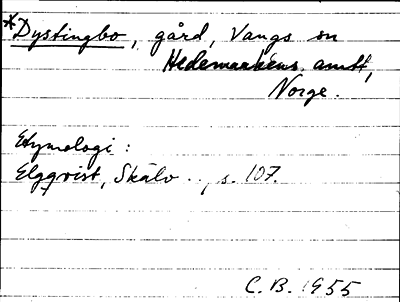 *Dystingbo, gård, Vangs sn
Hedemarkens amt,
Norge.
Etymologi:
Elgqvist, Skälv .., s. 107.
C. B. 1955